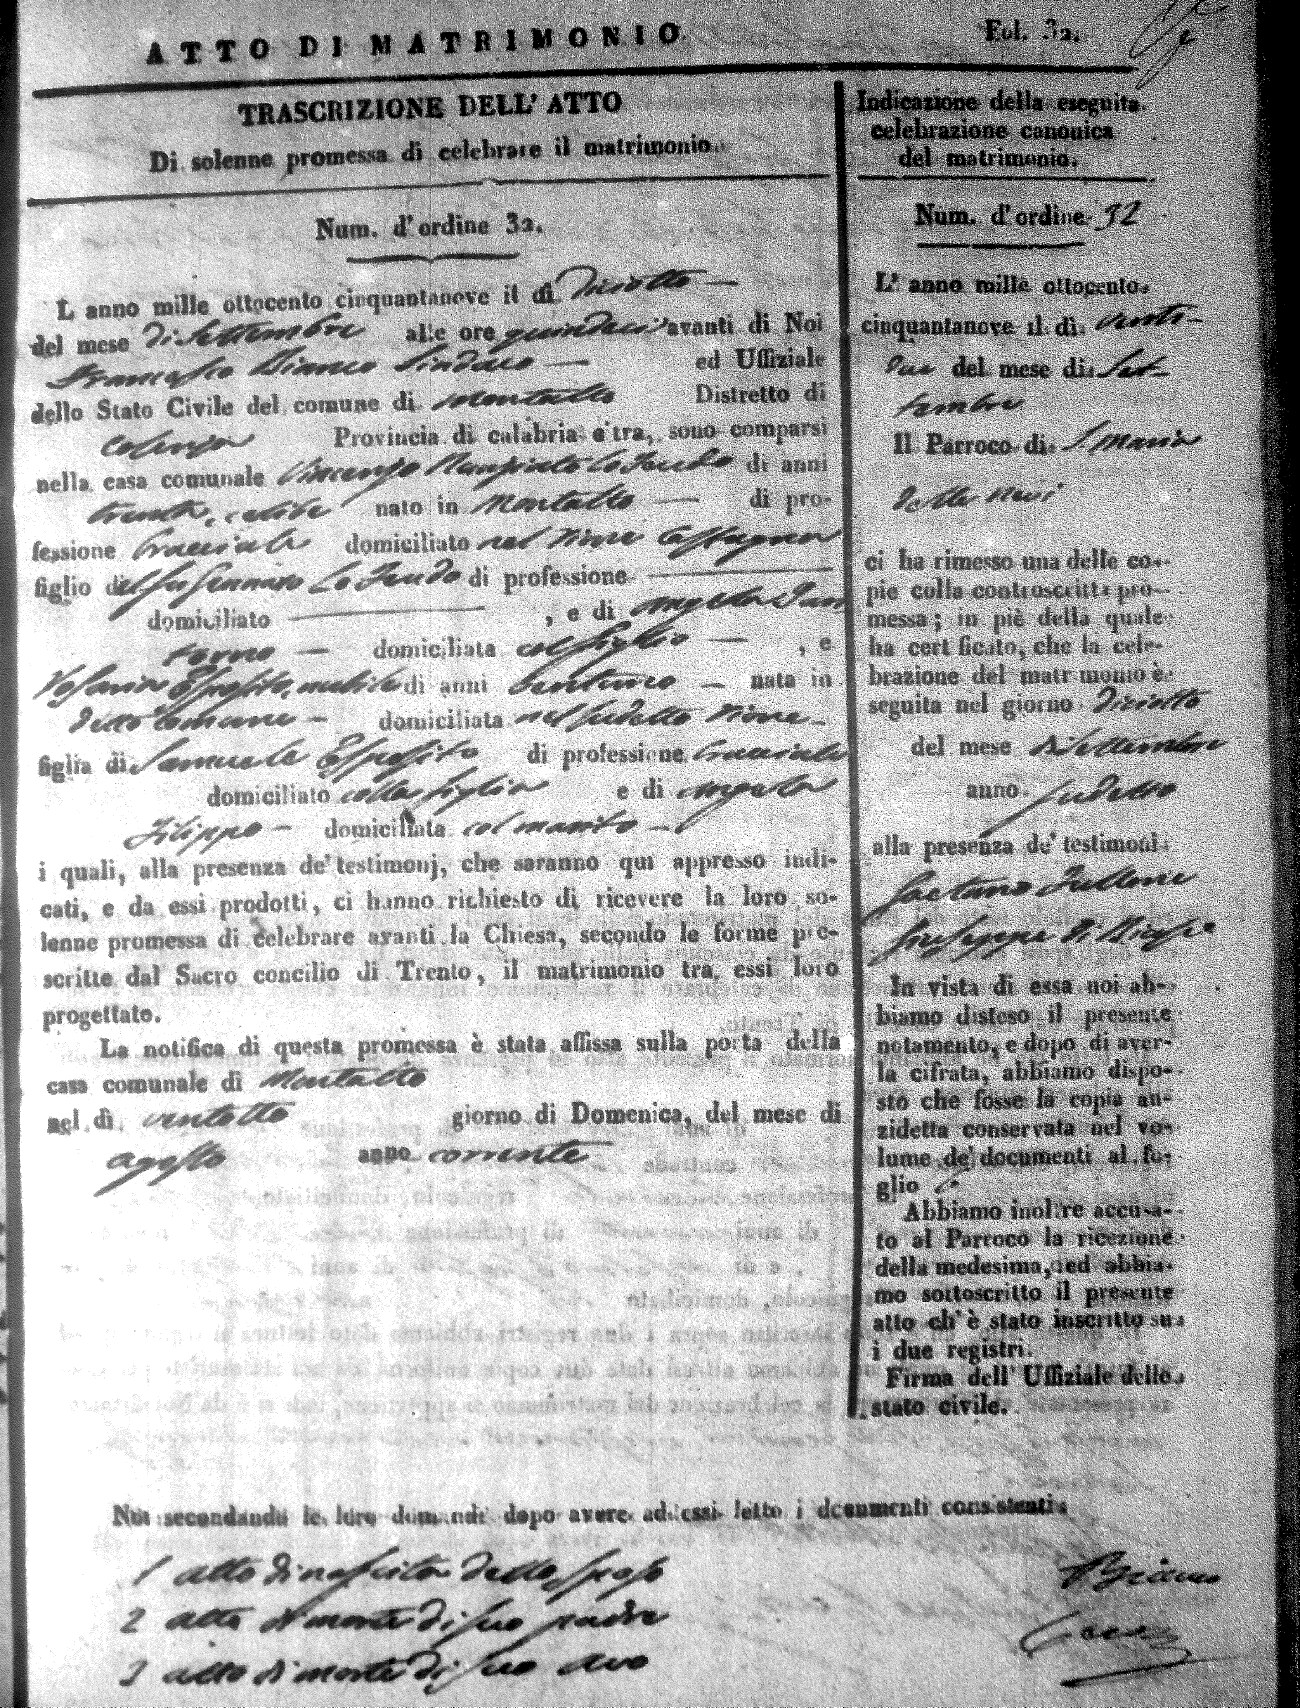 ATTO DI MATRIMONIO
Fol. 32.
TRASCRIZIONE DELL' ATTO
Di solenne promessa di celebrare il matrimonio.
Num. d' ordine 32.
L anno mille ottocento cinquantanove il dì Diciotto
del mese di Settembre alle ore quindeci avanti di Noi
Francesco Bianco Sindaco ed Uffiziale
dello Stato Civile del comune di Montalto Distretto di
Cosenza Provincia di calabria citra, sono comparsi
nella casa comunale Vincenzo Lo Feudo di anni
trenta, celibe nato in Montalto di pro-
fessione Bracciale domiciliato nel Rione Castagna
figlio del fu Gennaro Lo Feudo di professione
domiciliato , e di Angela San
torno domiciliata col figlio , e
Rosaria Esposito, nubile di anni ventuno nata in
detto Comune domiciliata nel sudetto Rione
figlia di Samuele Esposito di professione Bracciale
domiciliato colla figlia e di Angela
Filippo domiciliata col marito
i quali, alla presenza de' testimonj, che saranno qui appresso indi-
cati, e da essi prodotti, ci hanno richiesto di ricevere la loro so-
lenne promessa di celebrare avanti la Chiesa, secondo le forme pre-
scritte dal Sacro concilio di Trento, il matrimonio tra essi loro
progettato.
La notifica di questa promessa è stata affissa sulla porta della
casa comunale di Montalto
nel dì ventotto giorno di Domenica, del mese di
agosto anno corrente
Indicazione della eseguita
celebrazione canonica
del matrimonio.
Num. d' ordine 32
L' anno mille ottocento
cinquantanove il dì venti-
due del mese di Set-
tembre
Il Parroco di S. Maria
della Nevi
ci ha rimesso una delle co-
pie colla controscritta pro-
messa; in piè della quale
ha certificato, che la cele-
brazione del matrimonio è
seguita nel giorno Diciotto
del mese di Settembre
anno sudetto
alla presenza de' testimoni
Gaetano Fullone
Giuseppe Di Biase
In vista di essa noi ab-
biamo disteso il presente
notamento, e dopo di aver-
la cifrata, abbiamo dispo-
sto che fosse la copia an-
zidetta conservata nel vo-
lume de' documenti al fo-
glio
Abbiamo inoltre accusa-
to al Parroco la ricezione
della medesima, ed abbia-
mo sottoscritto il presente
atto ch' è stato inscritto su
i due registri.
Firma dell' Uffiziale dello
stato civile.
Noi secondando le loro domande dopo avere ad essi letto i documenti consistenti
1 atto di nascita dello sposo
2 atto di morte di suo padre
3 atto di morte di suo avo
Bianco